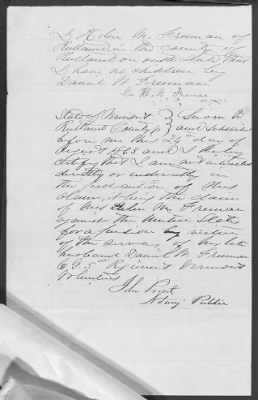 I Helen M. Freeman of
Rutland in the County of
Rutland on oath state that
I have no children by
Daniel M. Freeman
Mrs H. M. Freeman
State of Vermont } Sworn to
Rutland County } and Subscribed
before me this 24th day of
August 1863 and I hereby
certify that I am not interested
directly or indirectly in
the prosecution of this
claim, it being the claim
of Mrs Helen M. Freeman
against the United States
for a pension by virtue
of the services of her late
husband Daniel M. Freeman
Co G. 5th Regiment Vermont
Volunteers
John
Notary Public